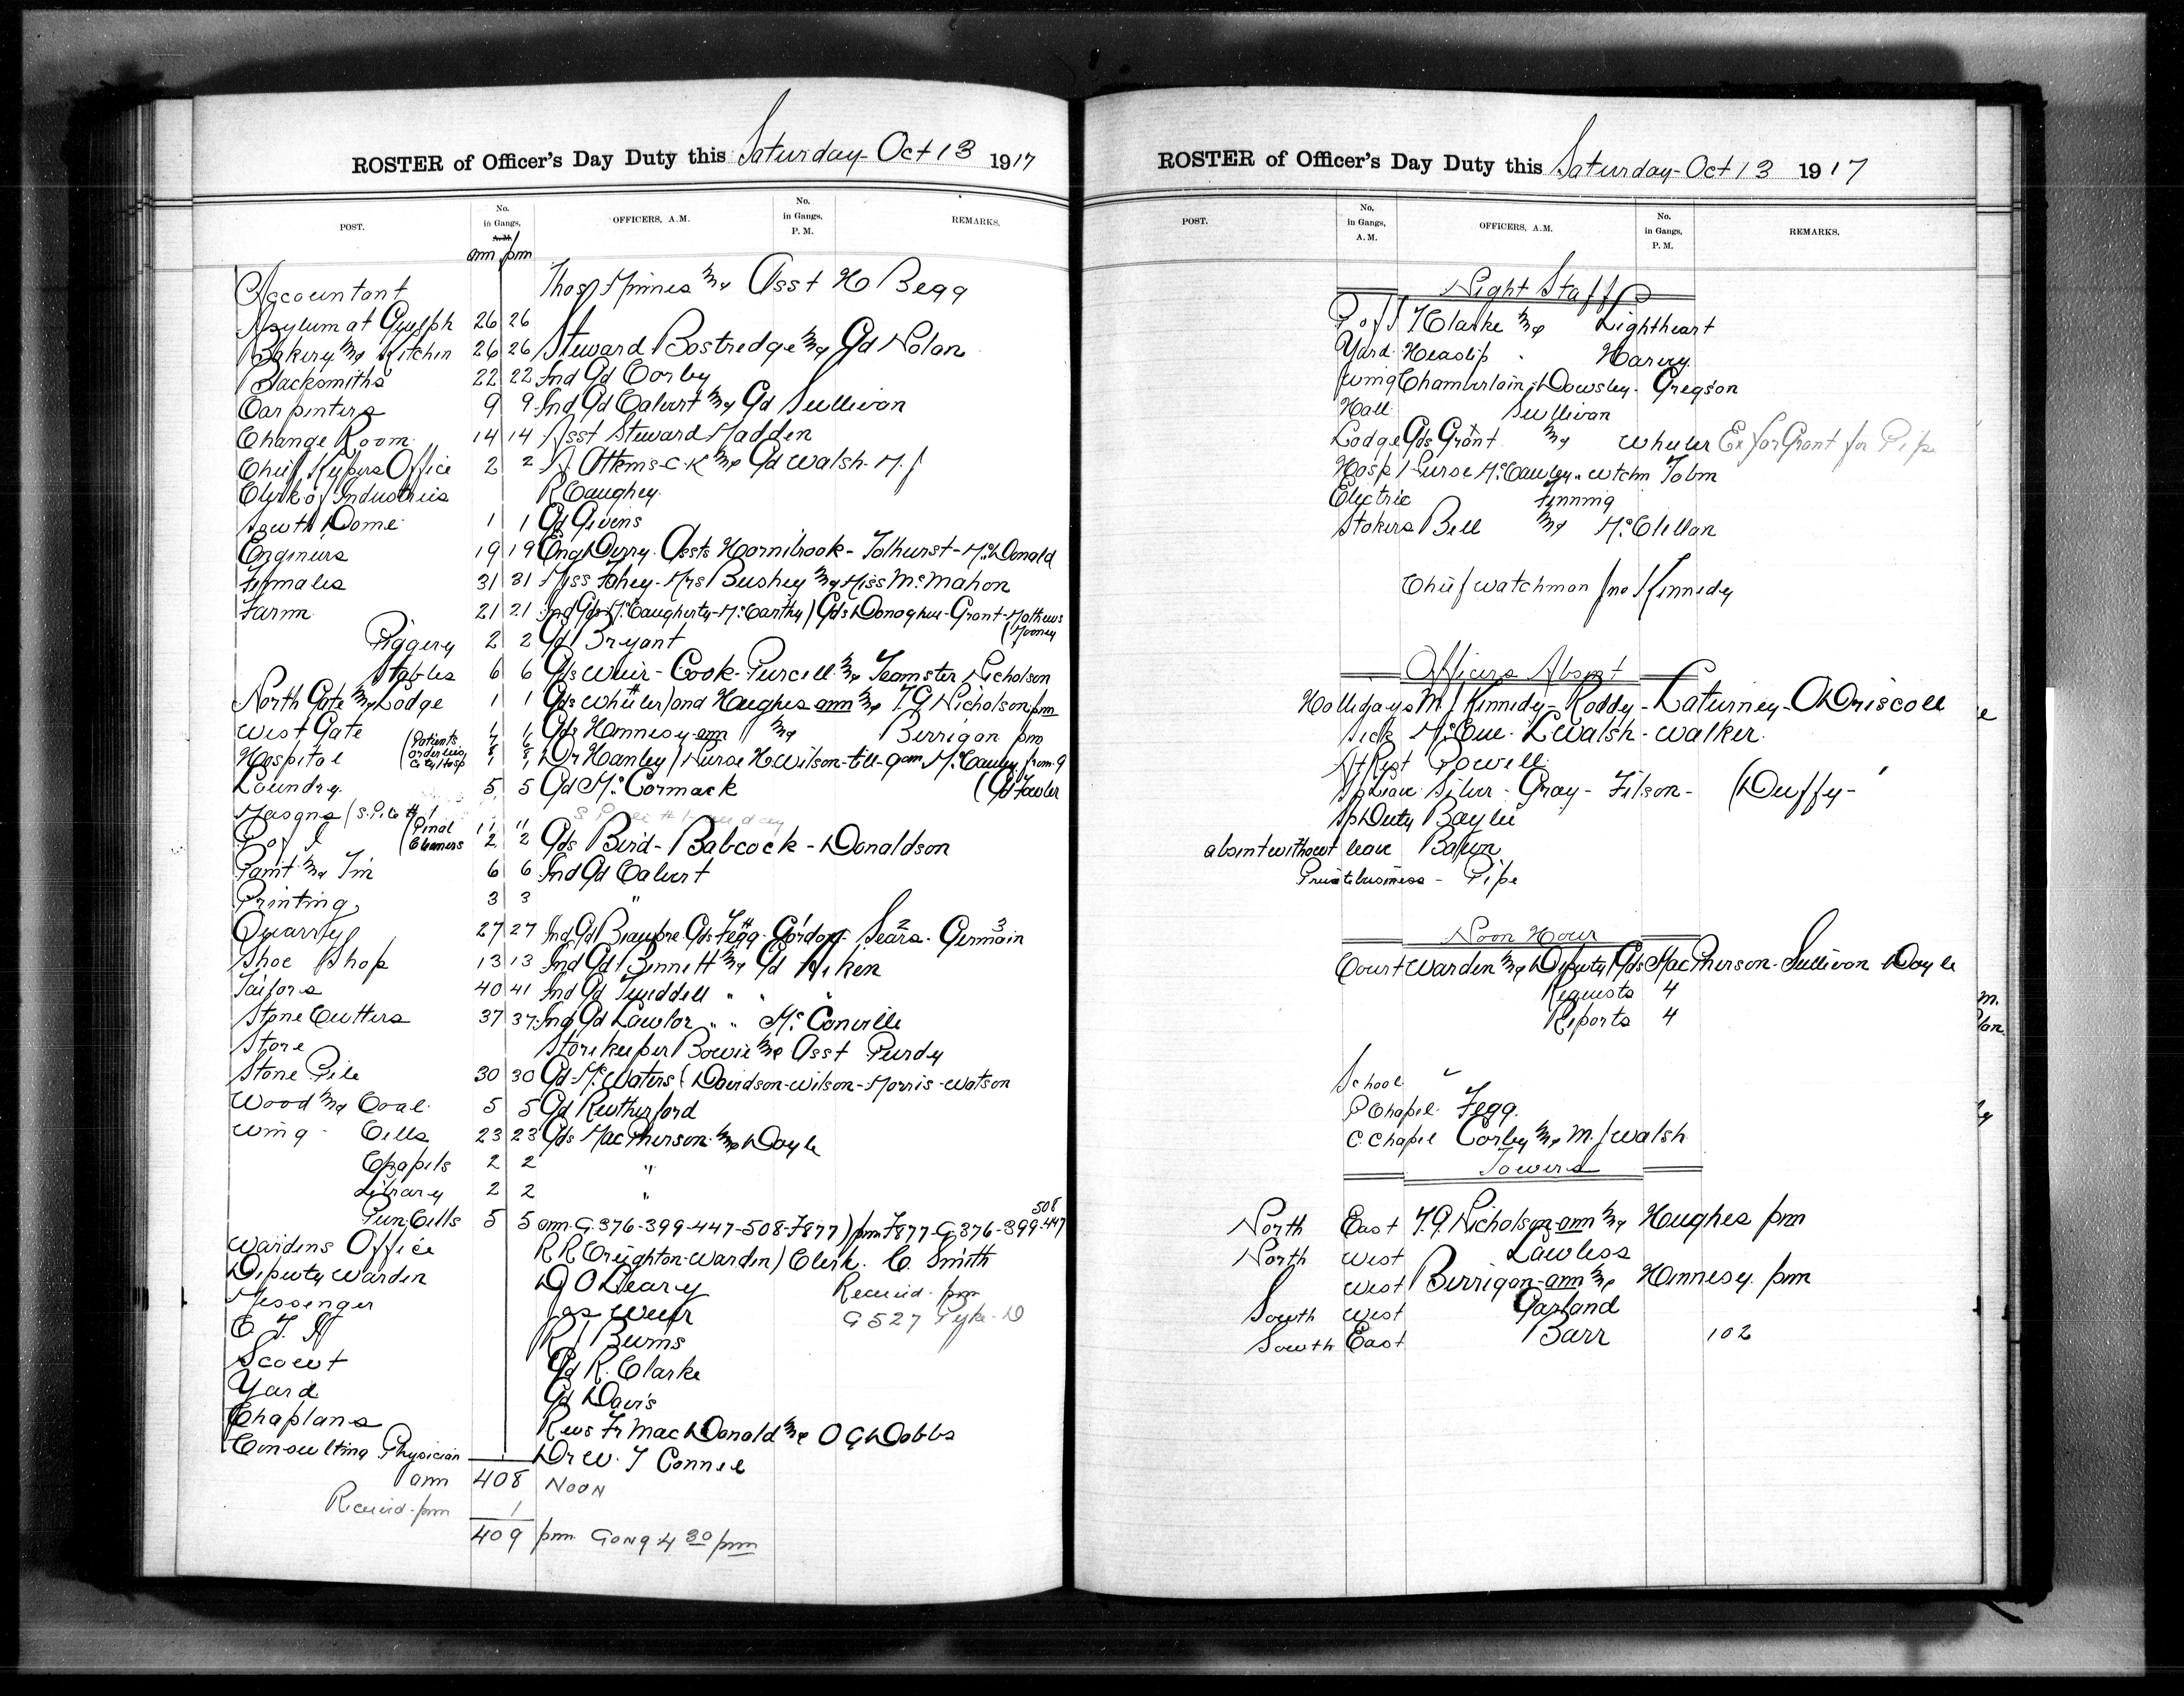 ROSTER of Officer's Day Duty this Saturday - Oct 13 1917
POST. No. in Gangs, A.M. OFFICERS, A.M. No. in Gangs, P.M. REMARKS.
am pm
Accountant Thos & Asst H Begg
Asylum at Guelph 26 26
Bakery & Kitchin 26 26 Steward Bostredge & Gd Nolan
Blacksmiths 22 22 Ind Gd Corby
Carpinters 9 9 Ind Gd Calvert & Gd Sullivan
Change Room 14 14 Asst Steward Madden
Chief Kepers Office 2 2 C.K & Gd Walsh. M. J
Clerk of Industries R Caughey
South Dome 1 1 Gd Givens
Engineers 19 19 Eng Derry. Assts Hornibrook - Tolhurst - McDonald
Females 31 31 Miss Fahey - Mrs Bushey & Miss McMahon
Farm 21 21 Ind Gds McCaugherty - McCarthy / Gds Donoghue - Grant - Mathews
(Mooney
Piggery 2 2 Gd Bryant
Stables 6 6 Gds Weir - Cook - Purcell & Teamster Nicholson
North Gate & Lodge 1 1 Gds Wheeler / and Hughes am & T.G Nicholson pm
West Gate 1 1 Gds Hennesy am & Berrigan pm
Hospital (Patients orderlies City Hosp 1 1 Dr Hanley / Nurse H Wilson - till - 9 am McCauley from 9
Laundry 5 5 Gd McCormack (Gd Fowler
Masons (S. Pile #1
P of I (Penal Cleaners 11 11 2 2 Gds Bird - Babcock - Donaldson
Paint & Tin 6 6 Ind Gd Calvert
Printing 3 3 "
Quarry 27 27 Ind Gd Beaupre Gds Fegg - Gordon - Sears - Germain
Shoe Shop 13 13 Ind Gd Bennett & Gd Aiken
Tailors 40 41 Ind Gd Tweddell " " "
Stone Cutters 37 37 Ind Gd Lawlor " " McConville
Store Storekeeper Bowie & Asst Purdy
Stone Pile 30 30 Gd McWaters (Davidson - Wilson - Morris - Watson
Wood & Coal 5 5 Gd Rutherford
Wing - Cells 23 23 Gds MacPherson & Doyle
Chapels 2 2 "
Library 2 2 "
508
Pun Cells 5 5 am. G. 376 - 399 - 447 - 508 - F877) pm F877 - G 376 - 399 - 447
Wardens Office R R Creighton - Warden) Clerk. C. Smith
Deputy Warden D O'Leary Received. pm
Messenger Jas Weir G 527 Pyke. D
C. T. A R J Burns
Scout Gd R. Clarke
Yard Gd Davis
Chaplans Revs Fr MacDonald & O G Dobbs
Consulting Physician Dr W. T Connel
am 408 NOON
Received. pm 1
409 pm GONG 4 30 pm
ROSTER of Officer's Day Duty this Saturday - Oct 13 1917
POST. No. in Gangs, A.M. OFFICERS, A.M. No. in Gangs, P.M. REMARKS.
Night Staff
P of I Clarke & Lightheart
Yard Heaslip . Harvey
Wing Chamberlain, Dowsley - Gregson
Hall Sullivan
Lodge Gds Grant & Wheeler Ex for Grant for Pipe
Hosp Nurse McCauley " Wtchm Tobin
Electric Finning
Stokers Bell & McClellan
Chief Watchman Jno Kennedy
Officers Absent
Hollidays M J Kennedy - Roddy - Laturney - O Driscoll
Sick McCue. L Walsh - Walker
At Rest Powell
Sp Leave Silver - Gray - Filson - (Duffy -
Sp Duty Baylie
absent without leave
Privatebusiness - Pipe
Noon Hour
Court Warden & Deputy / Gds MacPherson - Sullivan - Doyle
Requests 4
Reports 4
School
P Chapel Fegg.
C. Chapel Corby & M. J Walsh
Towers
North East T. G. Nicholson am & Hughes pm
North West Lawless
West Berrigan - am & Hennesy. pm
South West Garland
South East Barr 102